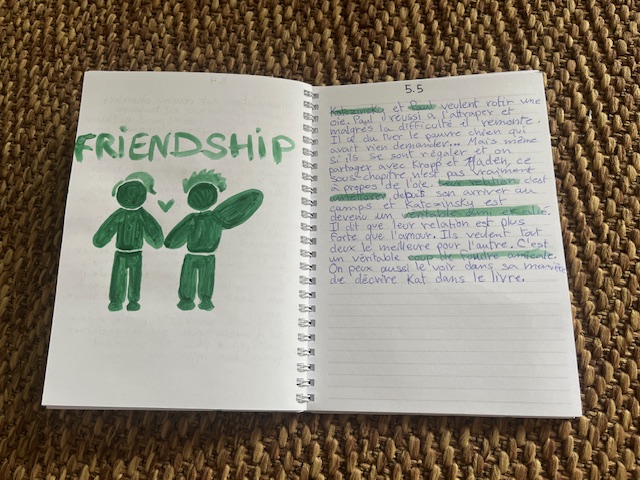 FRIENDSHIP
5.5
Katczinsky et Paul veulent rotir une
oie. Paul a réussi a l'attraper et
malgrès la difficulté il remonte.
Il a du tuer le pauvre chien qui
avait rien demander... Mais même
si ils se sont régaler et on
partager avec Kropp et Tjaden, ce
sous-chapitre n'est pas vraiment
à propos de l'oie. Leur relation c'est
améliorer depuis son arriver au
camps et Katczinsky est
devenu un véritable ami
Il dit que leur relation est plus
forte que l'amour. Ils veulent tout
deux le meilleure pour l'autre. C'est
un véritable coup de foudre amicale.
On peux aussi le voir dans sa manière
de décrire Kat dans le livre.